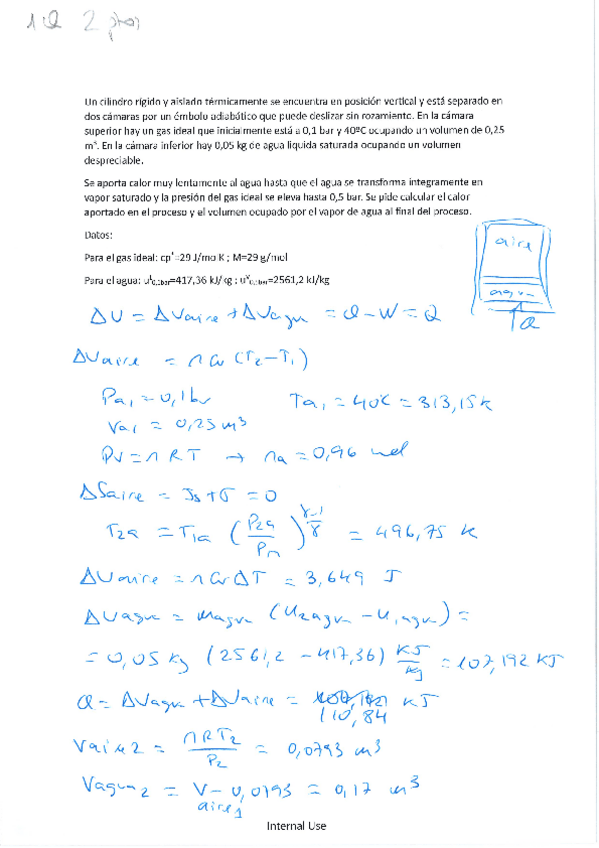 1Q 2 ptos
Un cilindro rígido y aislado térmicamente se encuentra en posición vertical y está separado en
dos cámaras por un émbolo adiabático que puede deslizar sin rozamiento. En la cámara
superior hay un gas ideal que inicialmente está a 0,1 bar y 40ºC ocupando un volumen de 0,25
m³. En la cámara inferior hay 0,05 kg de agua liquida saturada ocupando un volumen
despreciable.
Se aporta calor muy lentamente al agua hasta que el agua se transforma integramente en
vapor saturado y la presión del gas ideal se eleva hasta 0,5 bar. Se pide calcular el calor
aportado en el proceso y el volumen ocupado por el vapor de agua al final del proceso.
Datos:
Para el gas ideal: cp*=29 J/mo K ; M=29 g/mol
Para el agua: uᴸ0,1bar=417,36 kJ/kg ; uⱽ0,1bar=2561,2 kJ/kg
aire
agua
Q
ΔU = ΔUaire + ΔUagua = Q - W = Q
ΔUaire = n Cv (T2 - T1)
Pa1 = 0,1 br Ta1 = 40C = 313,15 K
Va1 = 0,25 m3
PV = n R T → na = 0,96 mol
ΔSaire = Js + σ = 0
T2a = T1a (P2a/P1a)^(γ-1/γ) = 496,75 K
ΔUaire = n Cv ΔT = 3,649 J
ΔUagua = magua (U2agua - U1agua) =
= 0,05 kg (2561,2 - 417,36) KJ/kg = 107,192 KJ
Q = ΔUagua + ΔUaire = 110,84 KJ
Vaire2 = nRT2/P2 = 0,0793 m3
Vagua2 = Vaire1 - 0,0793 = 0,17 m3
Internal Use